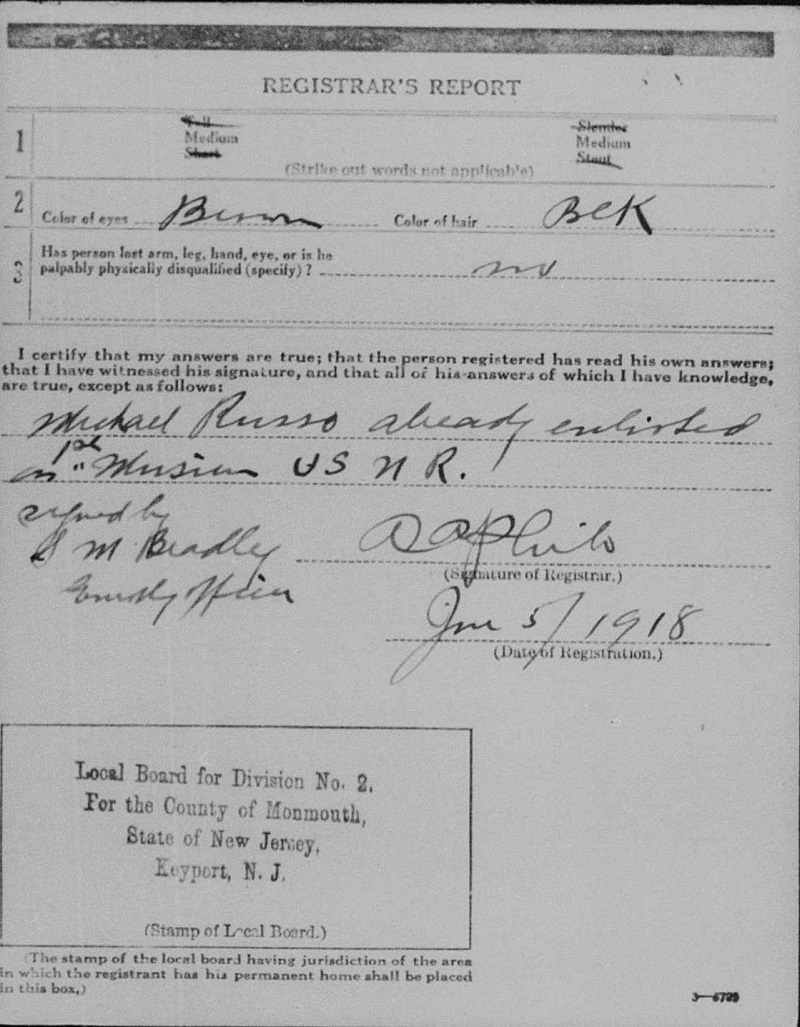 REGISTRAR'S REPORT
1
Tall
Medium
Short
Slender
Medium
Stout
(Strike out words not applicable)
2
Color of eyes Brown Color of hair Blck
3
Has person lost arm, leg, hand, eye, or is he
palpably physically disqualified (specify)? no
I certify that my answers are true; that the person registered has read his own answers;
that I have witnessed his signature, and that all of his answers of which I have knowledge,
are true, except as follows:
Michael Russo already enlisted
1st Musician U S N R.
signed by
S M Bradley
(Signature of Registrar.)
June 5/1918
(Date of Registration.)
Local Board for Division No. 2.
For the County of Monmouth,
State of New Jersey,
Keyport, N. J.
(Stamp of Local Board.)
(The stamp of the local board having jurisdiction of the area
in which the registrant has his permanent home shall be placed
in this box.)
3—6729